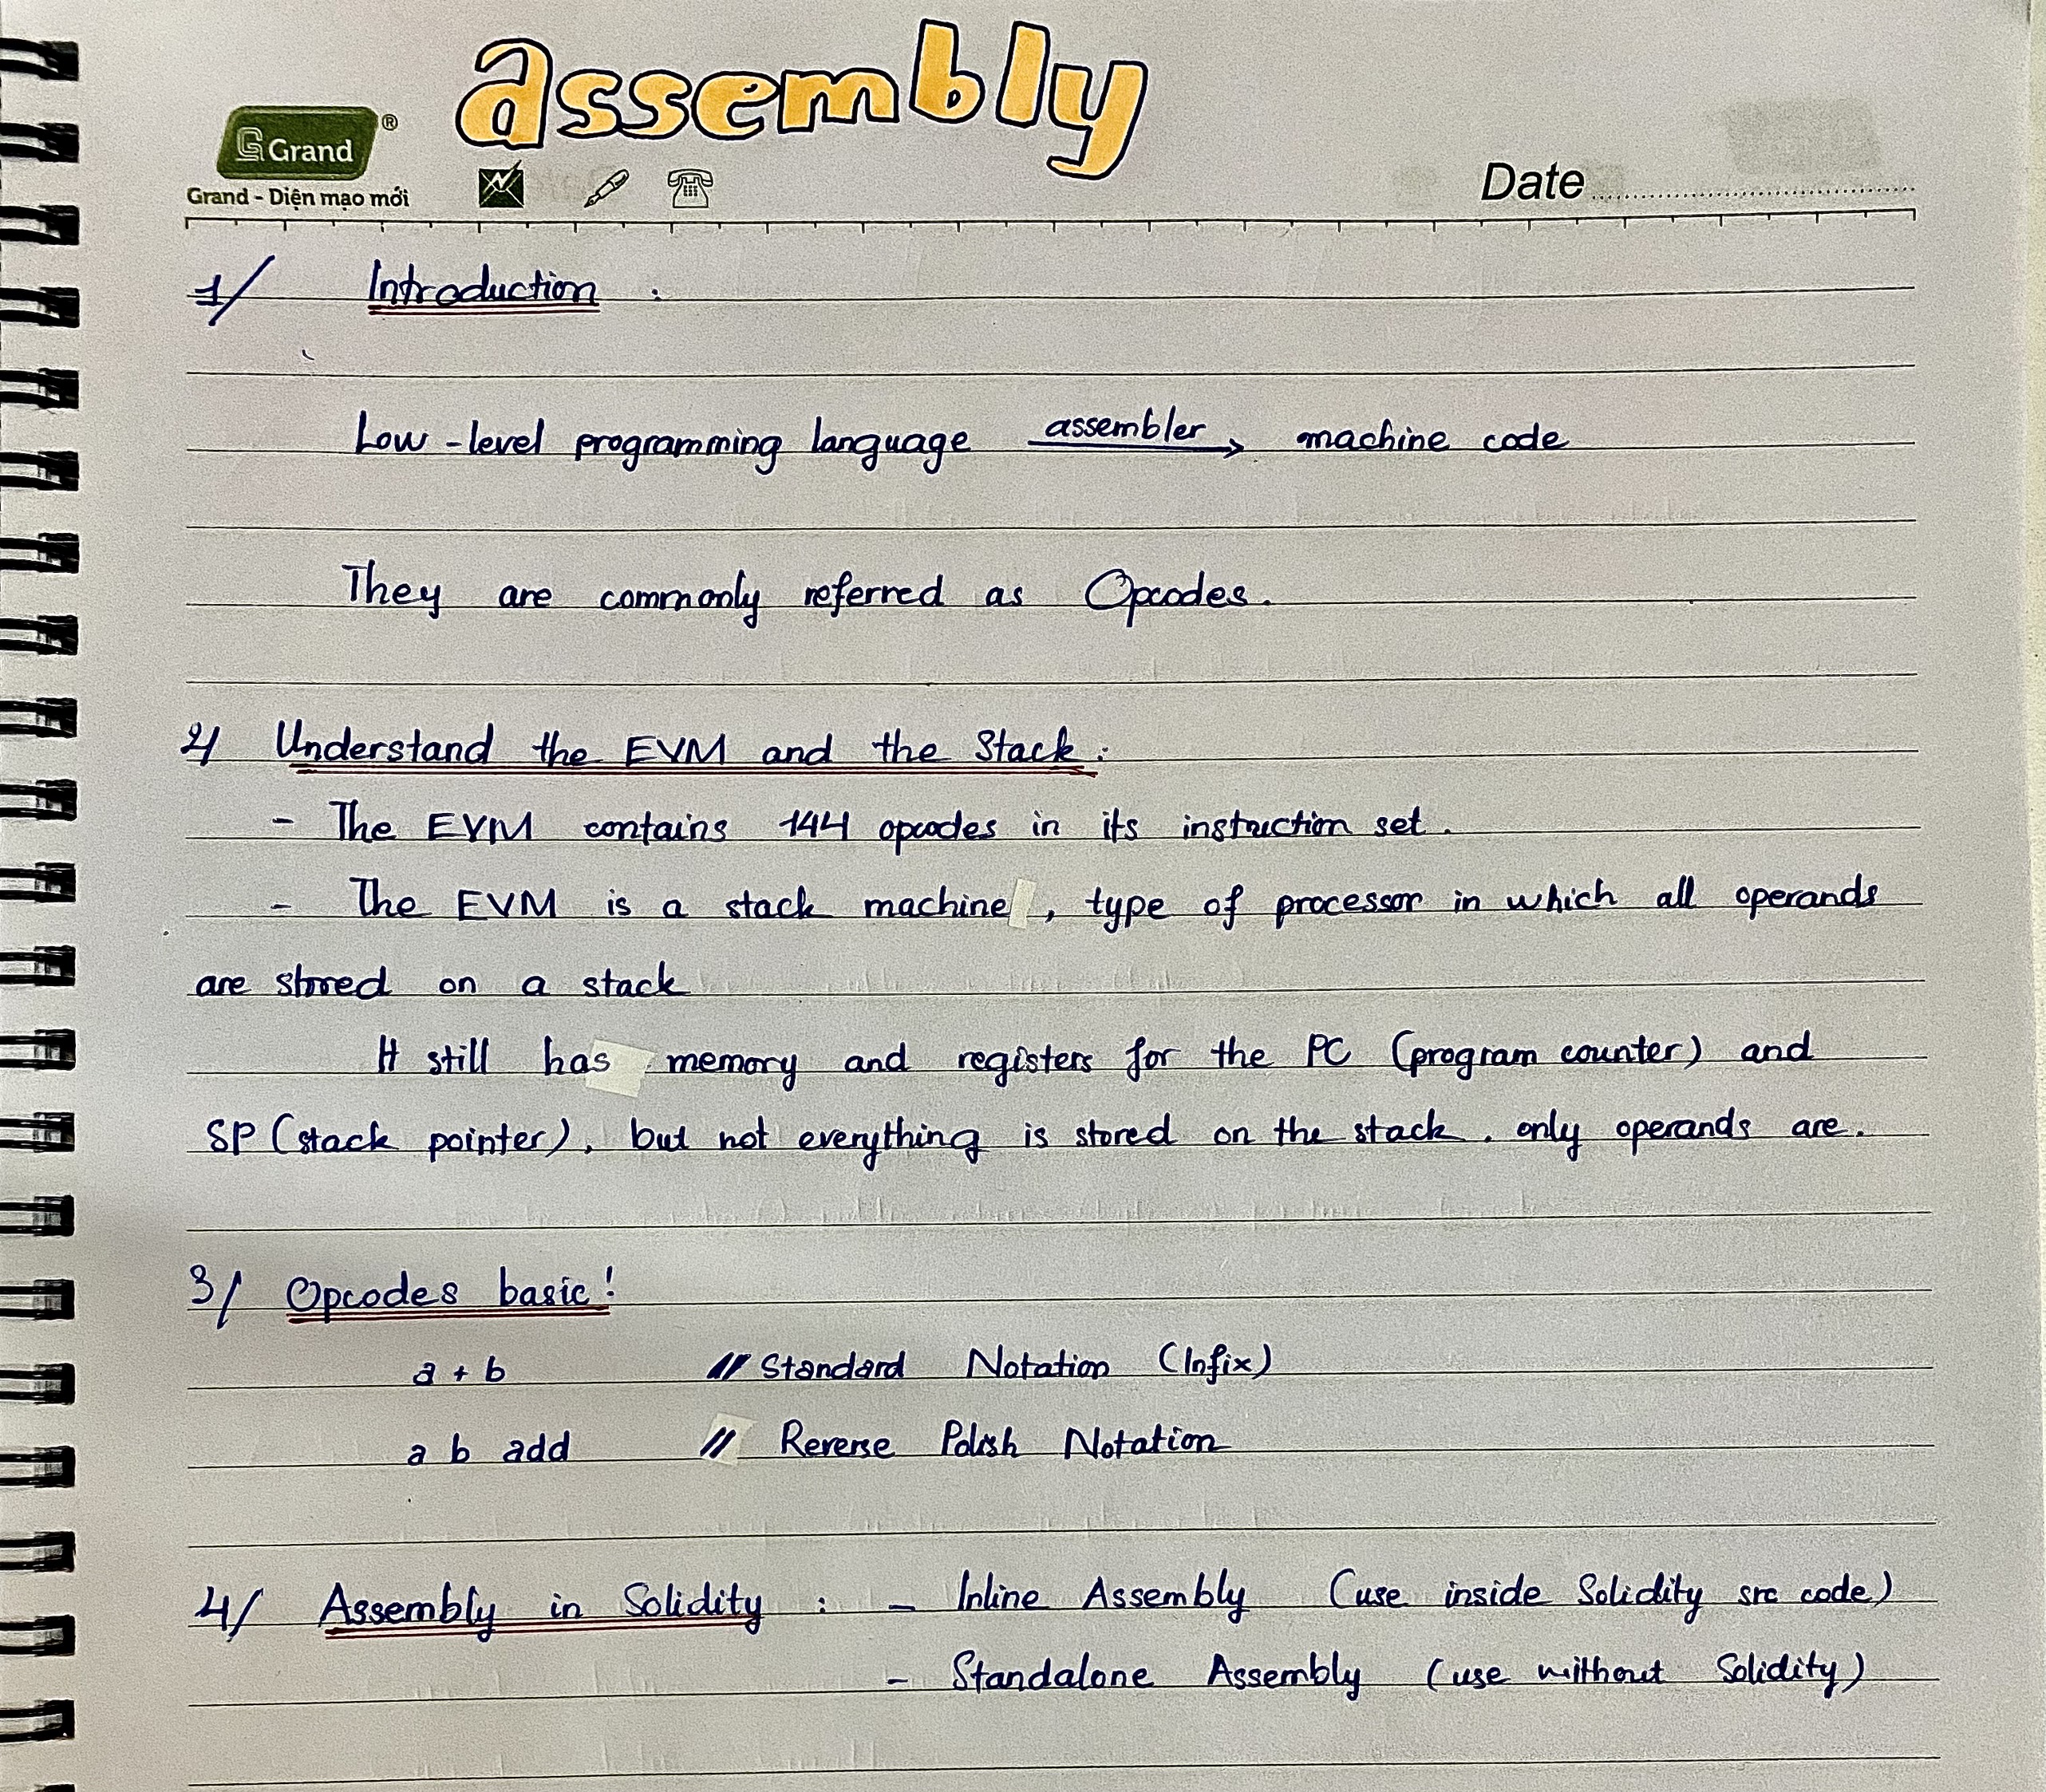 assembly
Grand ®
Grand - Diện mạo mới
Date
1/ Introduction :
Low-level programming language assembler → machine code
They are commonly referred as Opcodes.
2/ Understand the EVM and the Stack:
- The EVM contains 144 opcodes in its instruction set.
- The EVM is a stack machine, type of processor in which all operands
are stored on a stack
It still has memory and registers for the PC (program counter) and
SP (stack pointer), but not everything is stored on the stack, only operands are.
3/ Opcodes basic!
a + b // Standard Notation (Infix)
a b add // Reverse Polish Notation
4/ Assembly in Solidity : - Inline Assembly (use inside Solidity src code)
- Standalone Assembly (use without Solidity)